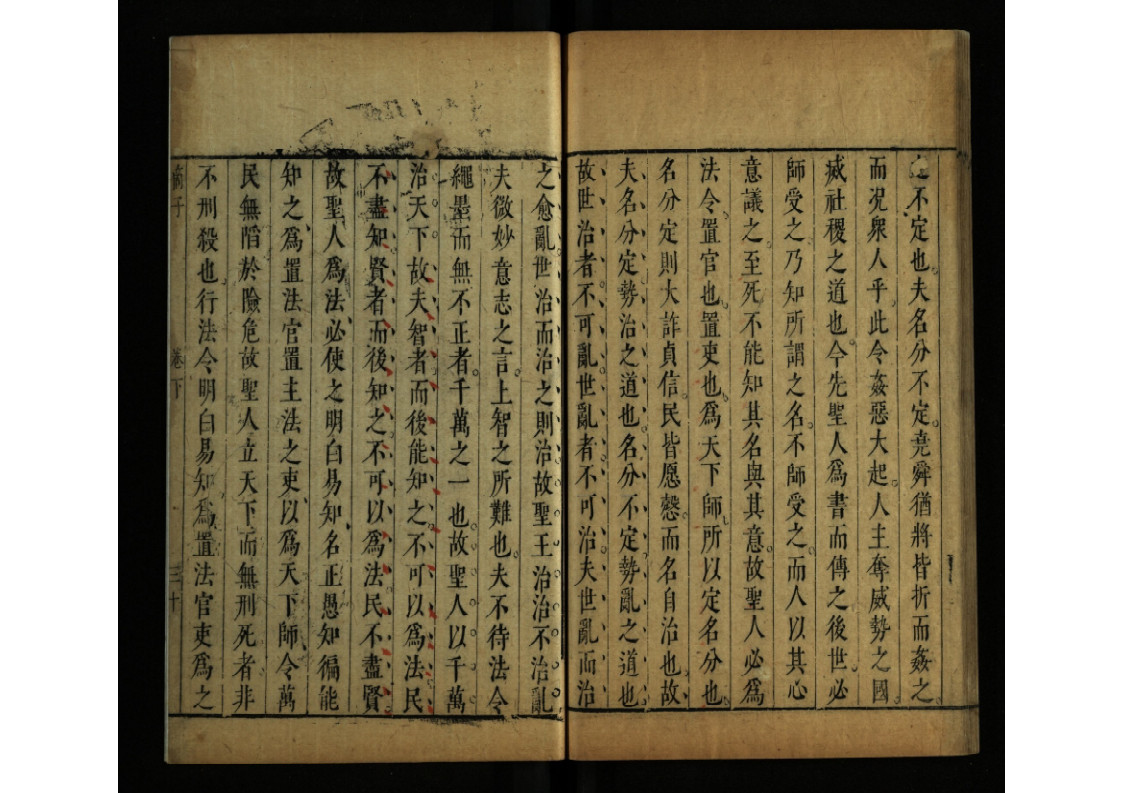 之不定也夫名分不定堯舜猶將皆折而姦之
而况衆人乎此令姦惡大起人主奪威勢之國
滅社稷之道也今先聖人爲書而傳之後世必
師受之乃知所謂之名不師受之而人以其心
意議之至死不能知其名與其意故聖人必爲
法令置官也置吏也爲天下師所以定名分也
名分定則大詐貞信民皆愿慤而名自治也故
夫名分定勢治之道也名分不定勢亂之道也
故世治者不可亂世亂者不可治夫世亂而治
之愈亂世治而治之則治故聖王治治不治亂
夫微妙意志之言上智之所難也夫不待法令
繩墨而無不正者千萬之一也故聖人以千萬
治天下故夫智者而後能知之不可以爲法民
不盡知賢者而後知之不可以爲法民不盡賢
故聖人爲法必使之明白易知名正愚知徧能
知之爲置法官置主法之吏以爲天下師令萬
民無陷於險危故聖人立天下而無刑死者非
不刑殺也行法令明白易知爲置法官吏爲之
商子 卷下 三十